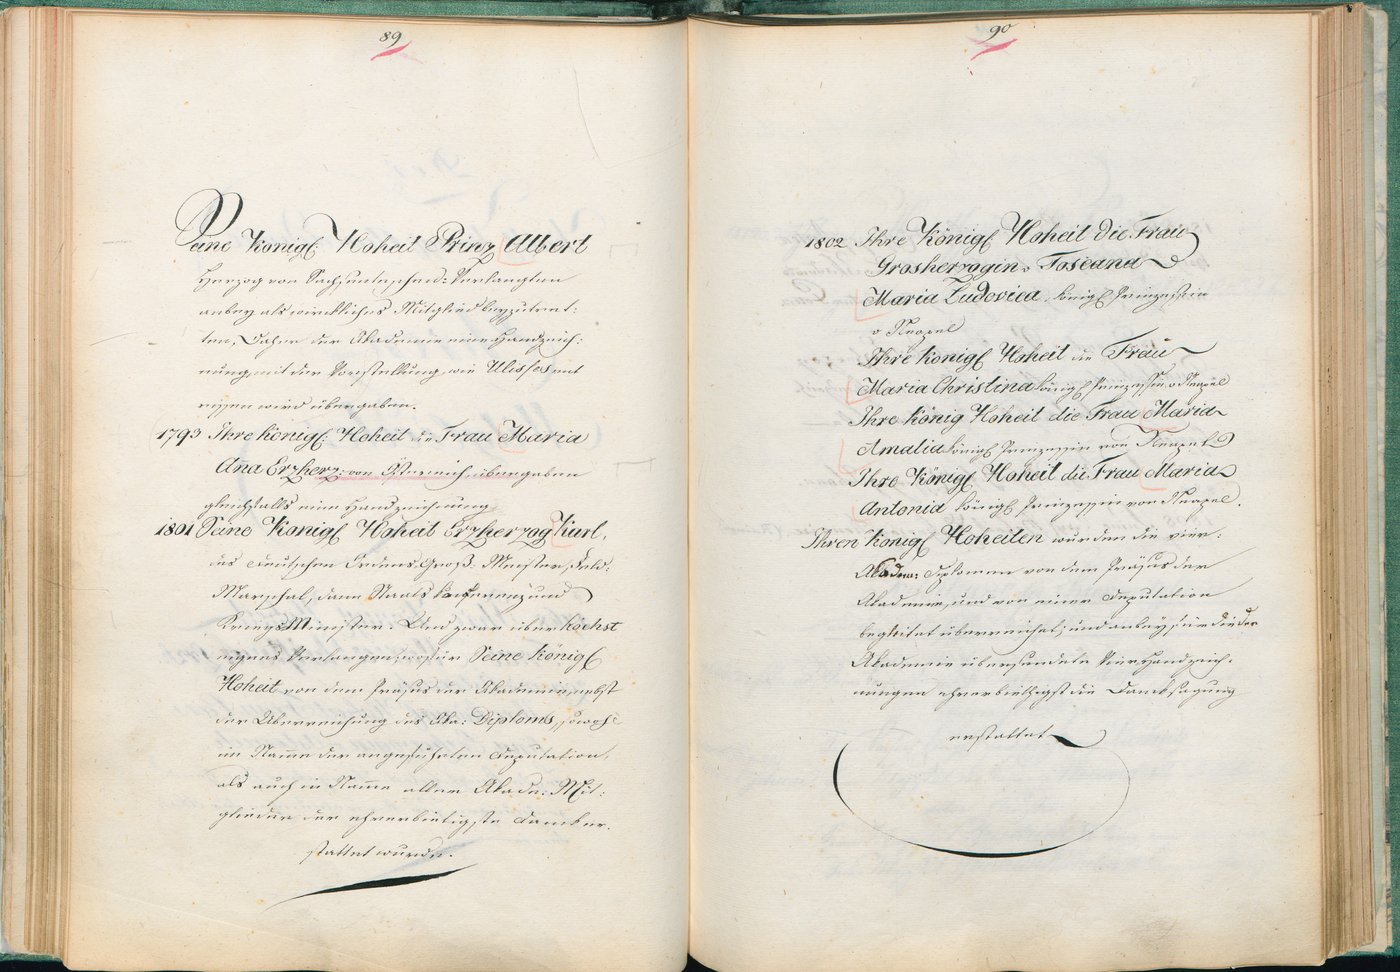 89
Seine Königl: Hoheit Prinz Albert
Herzog von Sachsenteschen: Verlangten
anbey als wirckliches Mitglied beyzutret:
ten, Daher der Akademie eine Handzeich:
nung, mit der Vorstellung, wie Ulisses ent
rissen wird übergaben.
1793 Ihre Königl: Hoheit die Frau Maria
Ana Erzherz: von Österreich übergaben
gleichfalls eine Handzeichnung
1801 Seine Königl Hoheit Erzherzog Karl,
des Deutschen Ordens Groß: Meister, Feld:
Marschal, dann Staats Konferenz und
Kriegs Minister. Und zwar über höchst
eigenes Verlangen wofür Seine Königl
Hoheit von dem Präsus der Akademie, nebst
der Überreichung des Aka: Diploms, sowohl
im Name der angeführten Deputation,
als auch in Name aller Akade: Mit:
glieder der ehrerbietigste Dank er:
stattet wurde.
90
1802 Ihre Königl Hoheit die Frau
Grosherzogin v Toscana
Maria Ludovica, königl Prinzessin
v Neapel
Ihre Königl Hoheit die Frau
Maria Christina königl Prinzessin v Neapel
Ihre König Hoheit die Frau Maria
Amalia königl Prinzessin von Neapel
Ihre Königl Hoheit die Frau Maria
Antonia königl Prinzessin von Neapel.
Ihren Königl Hoheiten wurden die vier:
Akadem: Diplomen von dem Präsus der
Akademie, und von einer Deputation
begleitet überreichet, und anbey für die der
Akademie übersendete Vier Handzeich:
nungen ehrerbiethigst die Danksagung
erstattet